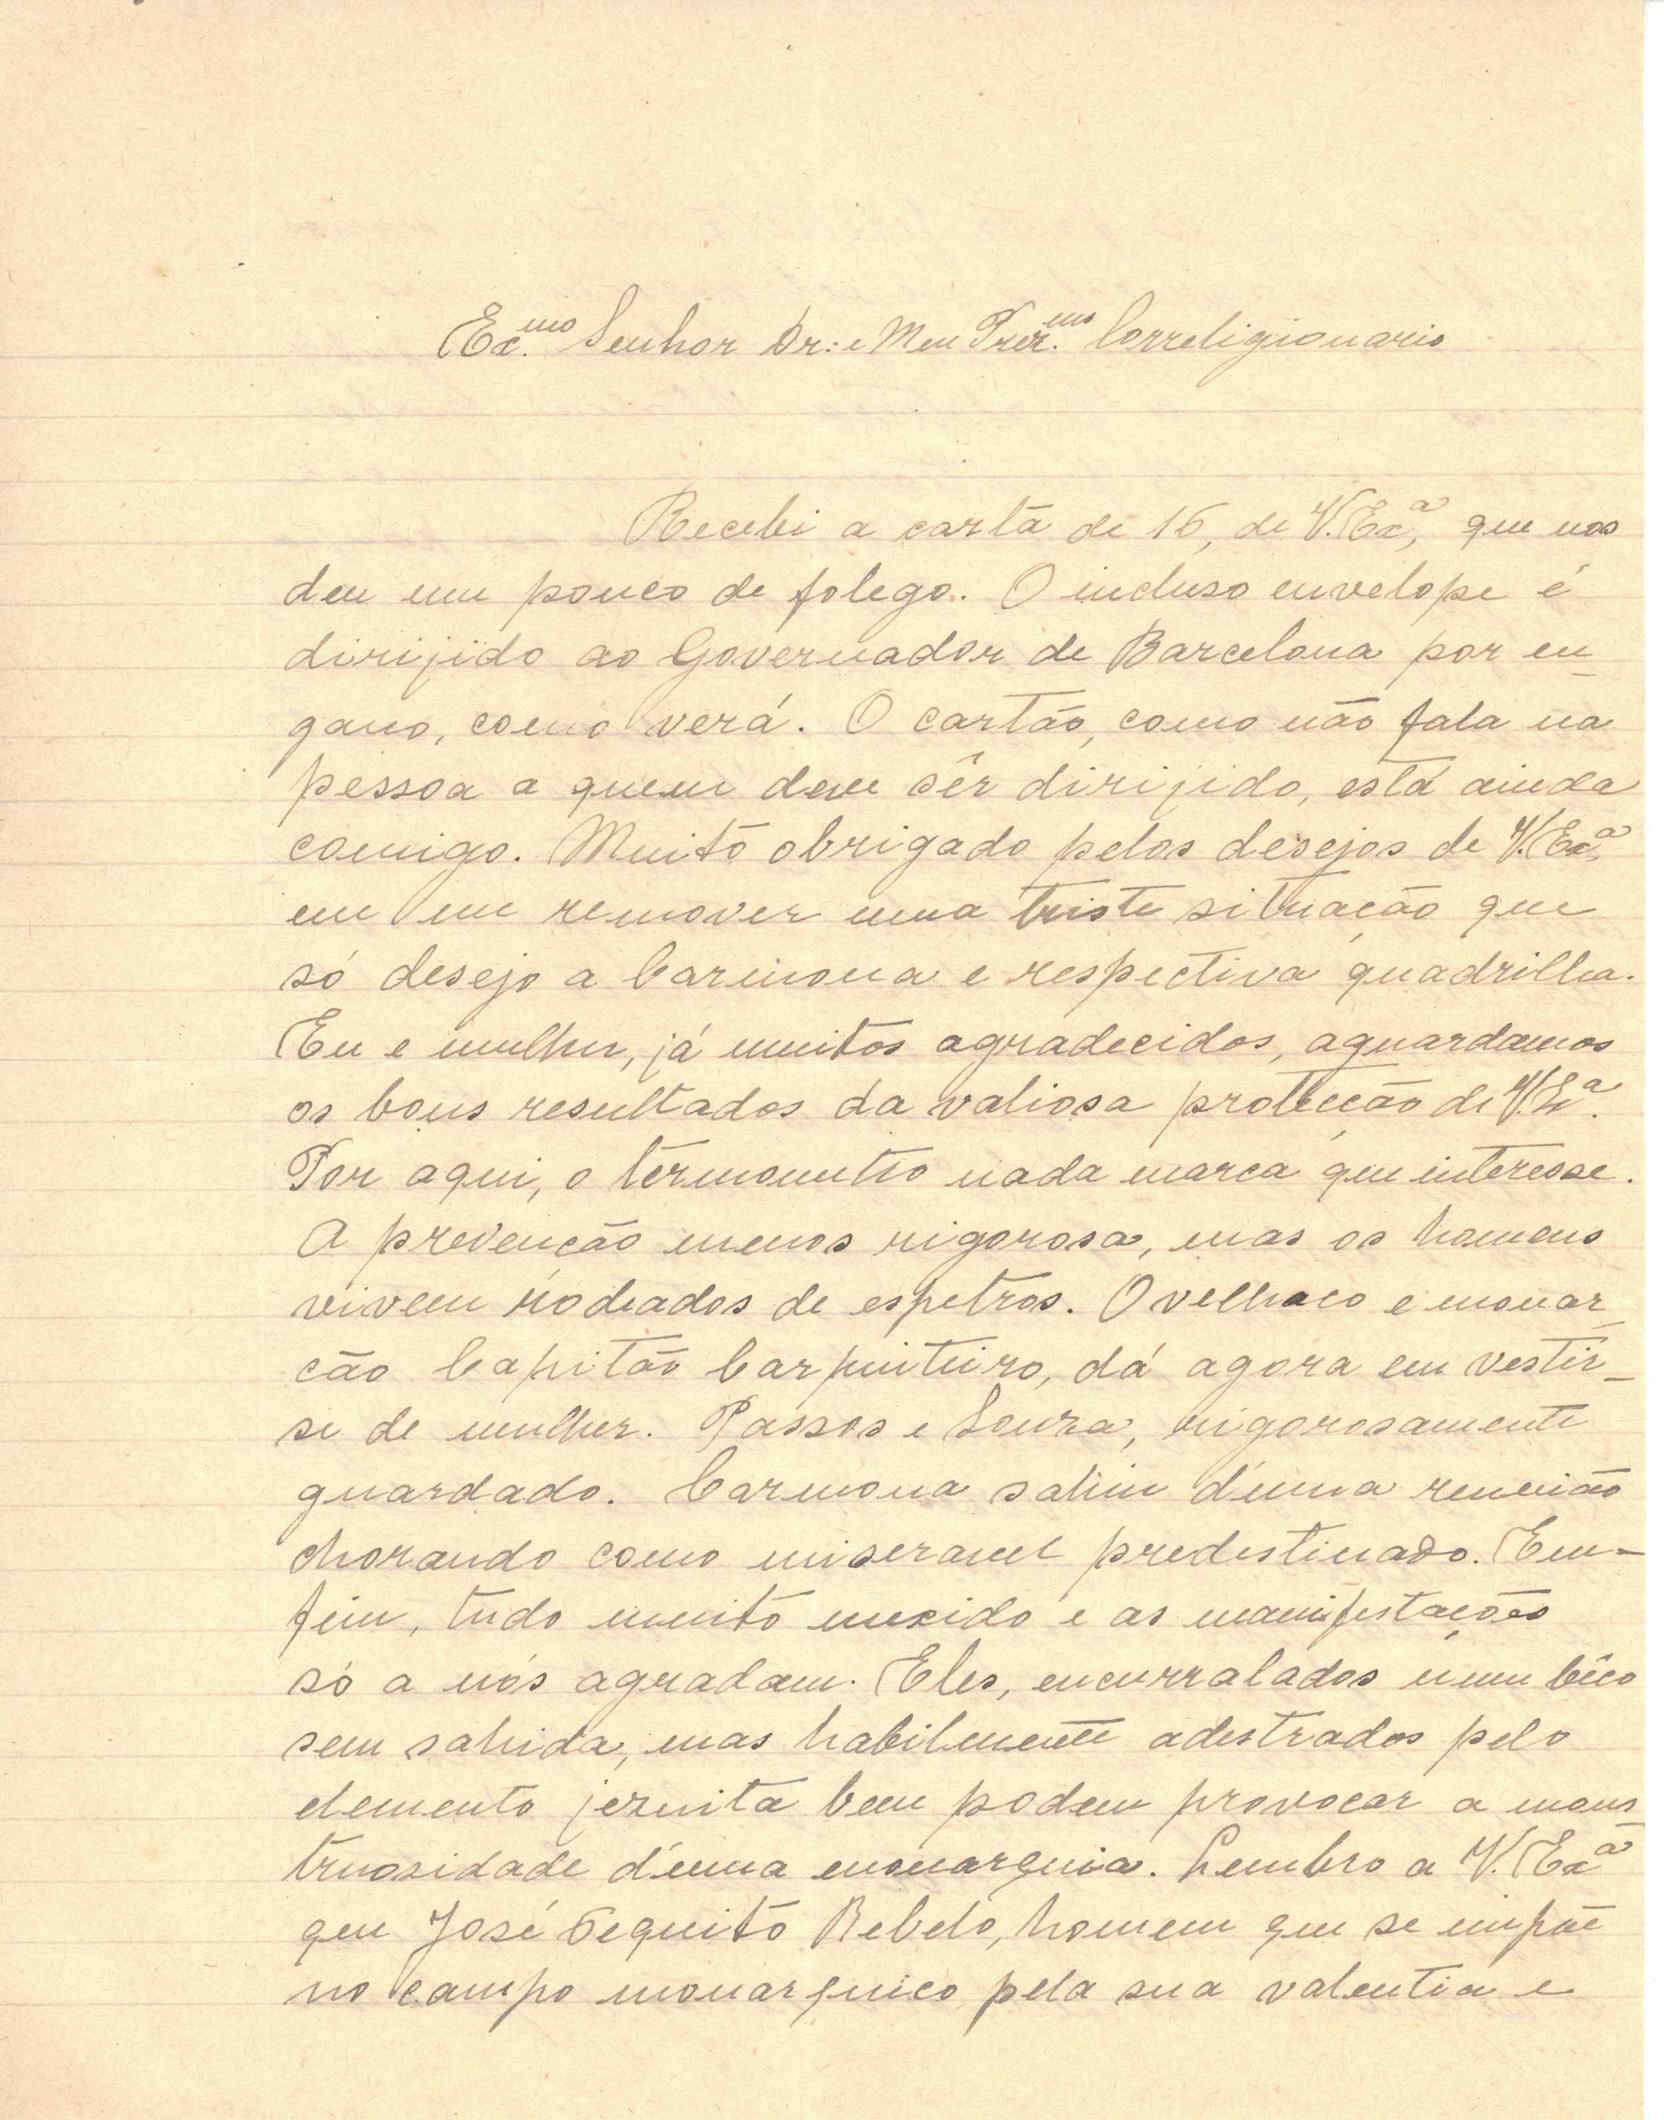 Ex.mo Senhor Dr: e Meu Prez.mo Correligionario
Recebi a carta de 16, de V. Ex.a, que nos
deu um pouco de folego. O incluso envelope é
dirijido ao Governador de Barcelona por en_
gano, como verá. O cartão, como não fala na
pessoa a quem deve sêr dirijido, está ainda
comigo. Muito obrigado pelos desejos de V. Ex.a
em me remover uma triste situação que
só desejo a Carmona e respectiva quadrilha.
Eu e mulher, já muitos agradecidos, aguardamos
os bons resultados da valiosa protecção de V. Ex.a.
Por aqui, o termometro nada marca que interesse.
A prevenção menos rigorosa, mas os homens
vivem rodeados de espetros. O velhaco e monar_
cão Capitão Carpinteiro, dá agora em vestir_
se de mulher. Passos e Souza, rigorosamente
guardado. Carmona sahiu d'uma reunião
chorando como miseravel predestinado. Em-
fim, tudo muito mexido e as manifestações
só a nós agradam. Eles, encurralados n'um bêco
sem sahida, mas habilmente adestrados pelo
elemento jezuita bem podem provocar a mons_
truosidade d'uma monarquia. Lembro a V. Ex.a
que José Pequito Rebelo, homem que se impõe
no campo monarquico pela sua valentia e